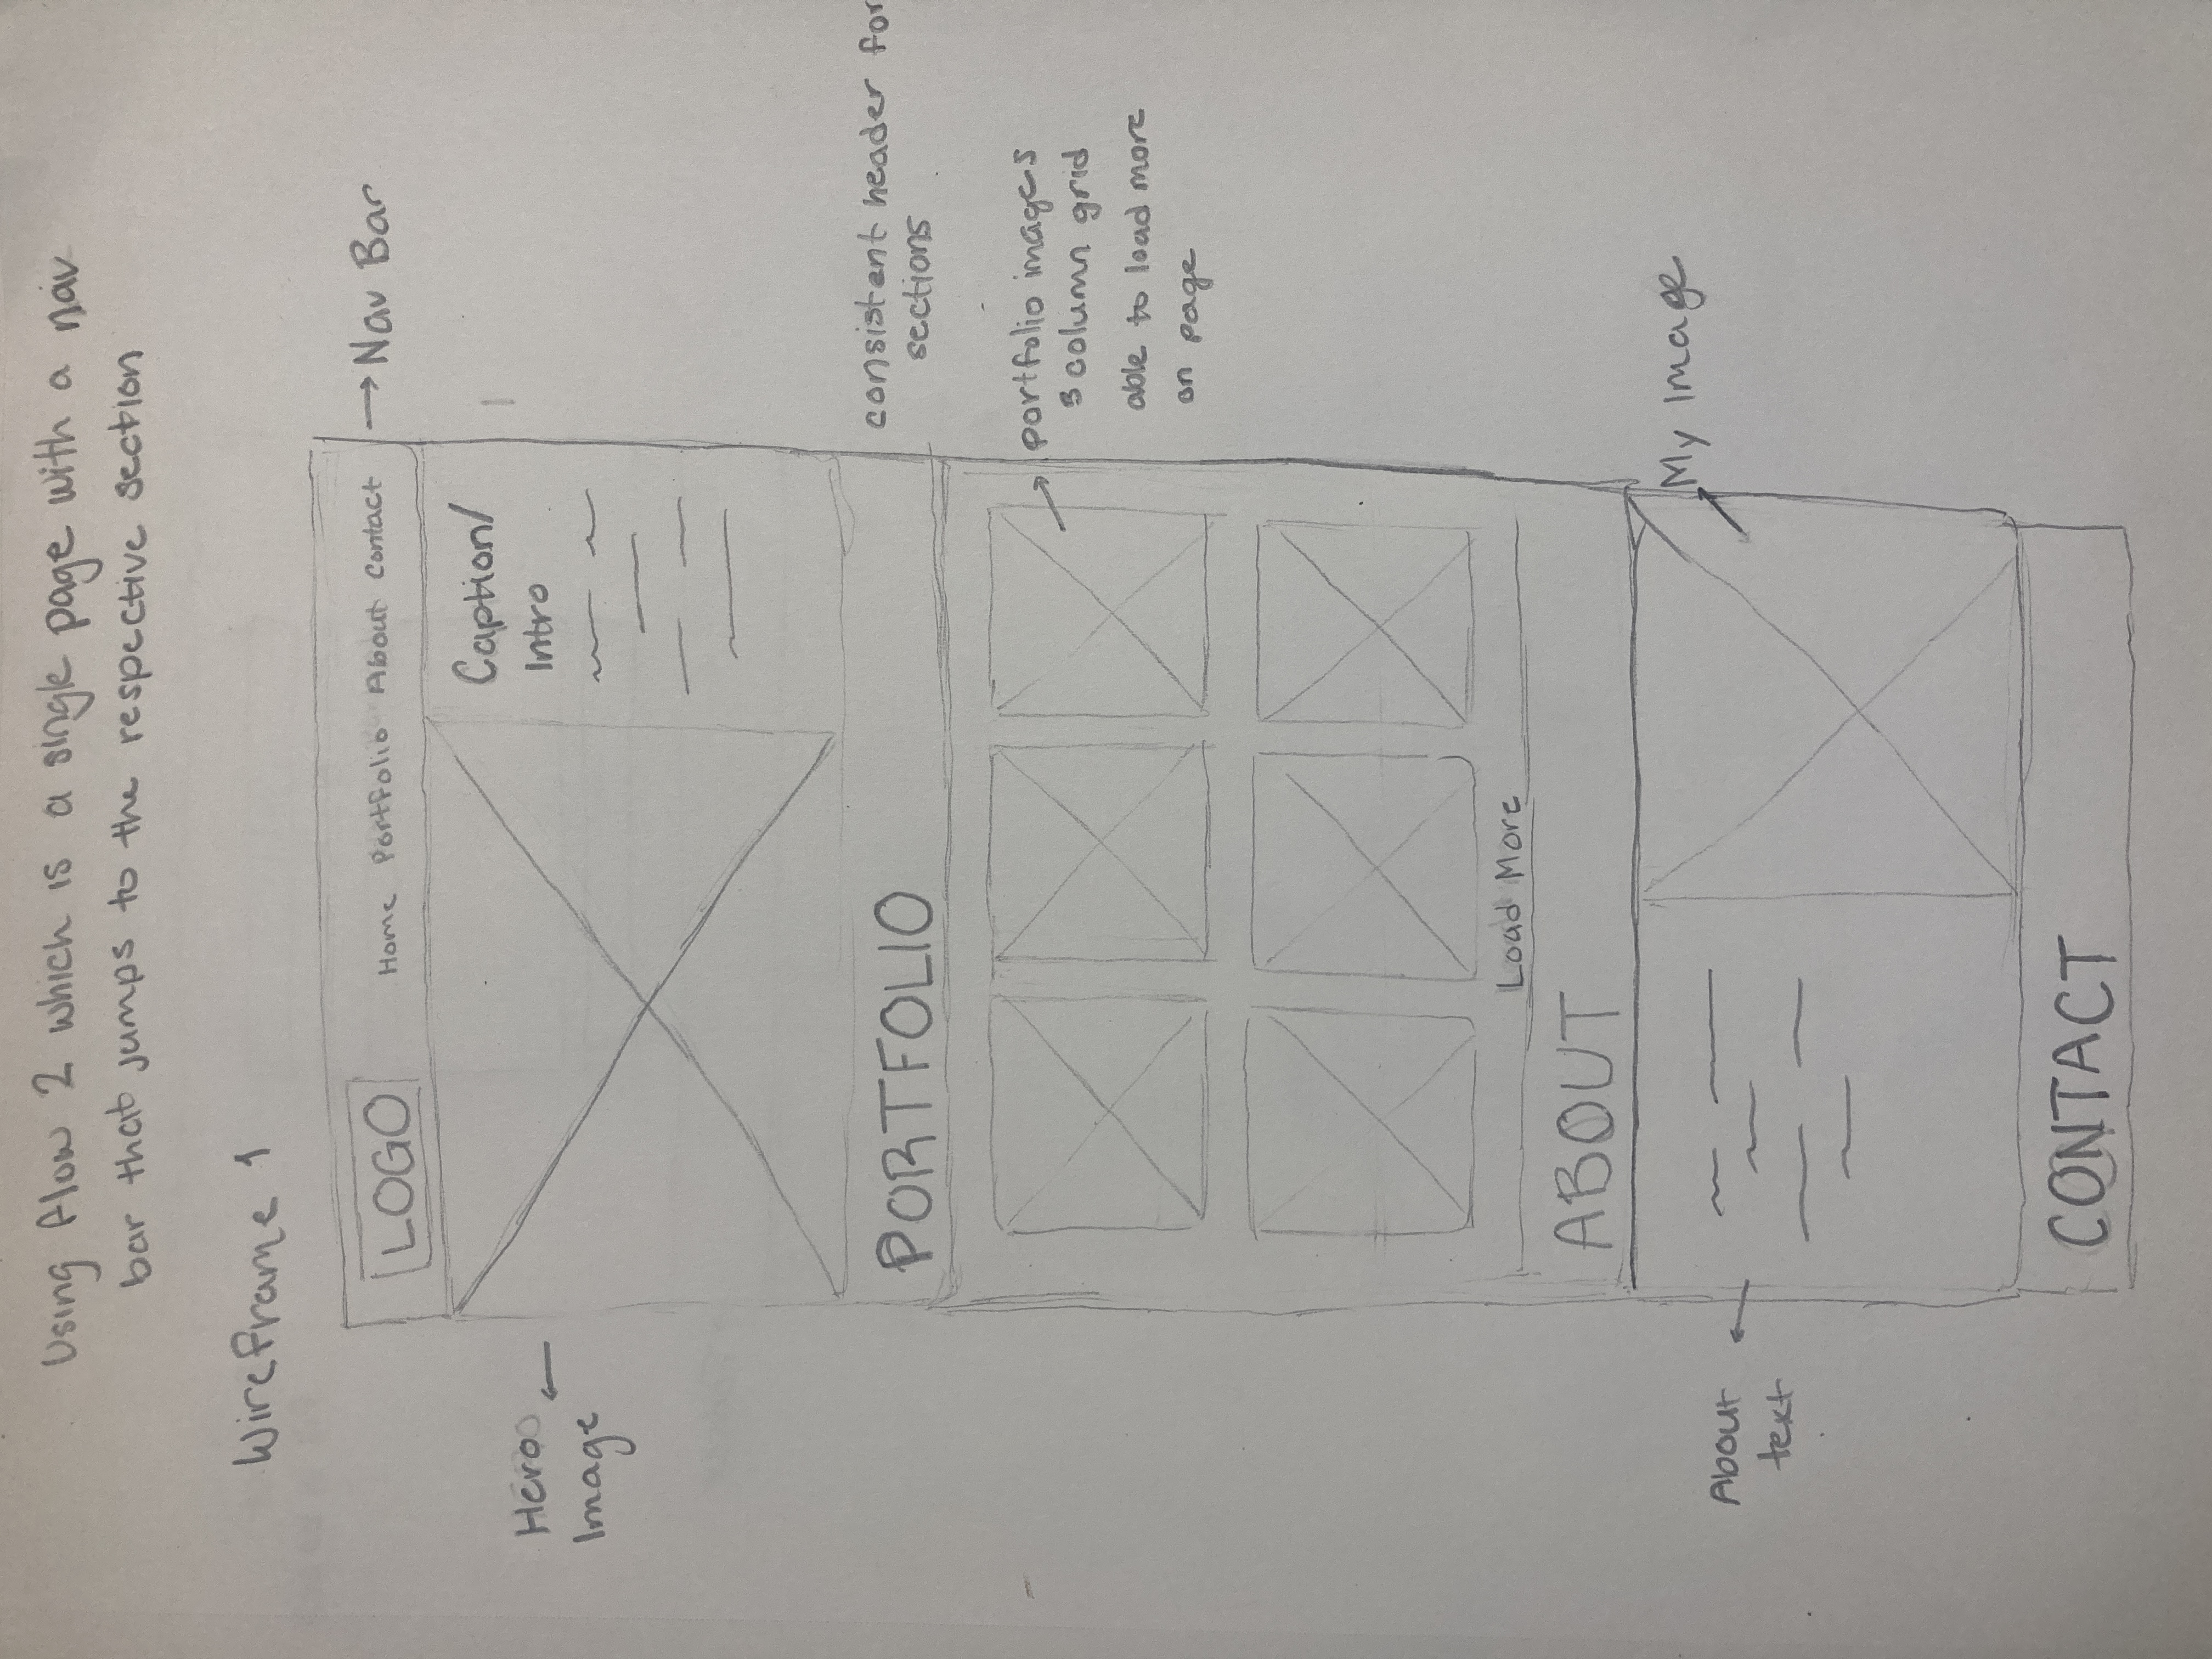 Using flow 2 which is a single page with a nav
bar that jumps to the respective section
Wireframe 1
LOGO
Home Portfolio About Contact
→ Nav Bar
Hero
Image
Caption/
Intro
PORTFOLIO
consistent header for
sections
portfolio images
3 column grid
able to load more
on page
Load More
ABOUT
My Image
About
text
CONTACT